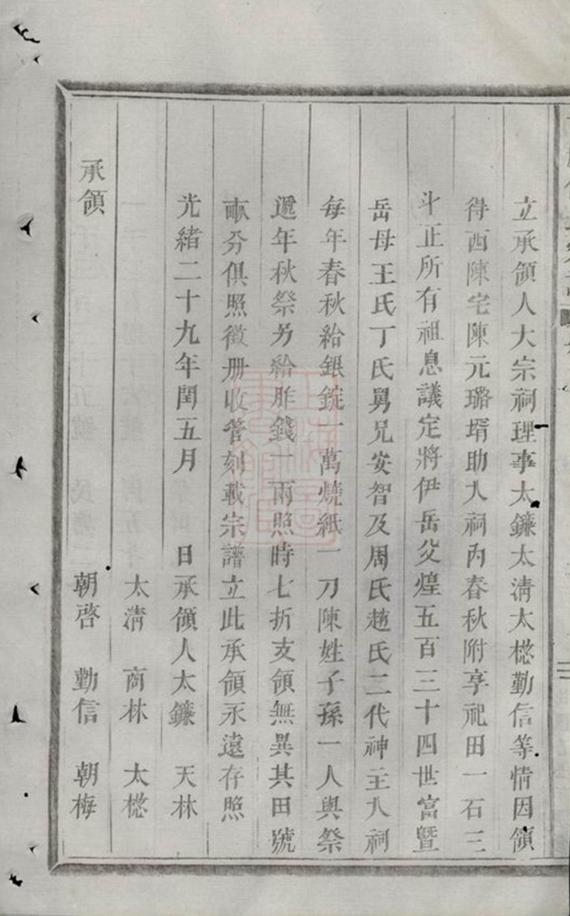 立承領人大宗祠理事太鐮太清太樬勤信等情因領
得西陳宅陳元璐壻助入祠內春秋附享祀田一石三
斗正所有祖息議定將伊岳父煌五百三十四世富暨
岳母王氏丁氏舅兄安智及周氏趙氏二代神主入祠
每年春秋給銀錠一萬燒紙一刀陳姓子孫一人與祭
遞年秋祭另給胙錢一兩照時七折支領無異其田號
畝分俱照徵册收管刻載宗譜立此承領永遠存照
光緒二十九年閏五月 日承領人太鐮 天林
太清 商林 太樬
承領 朝啓 勤信 朝梅